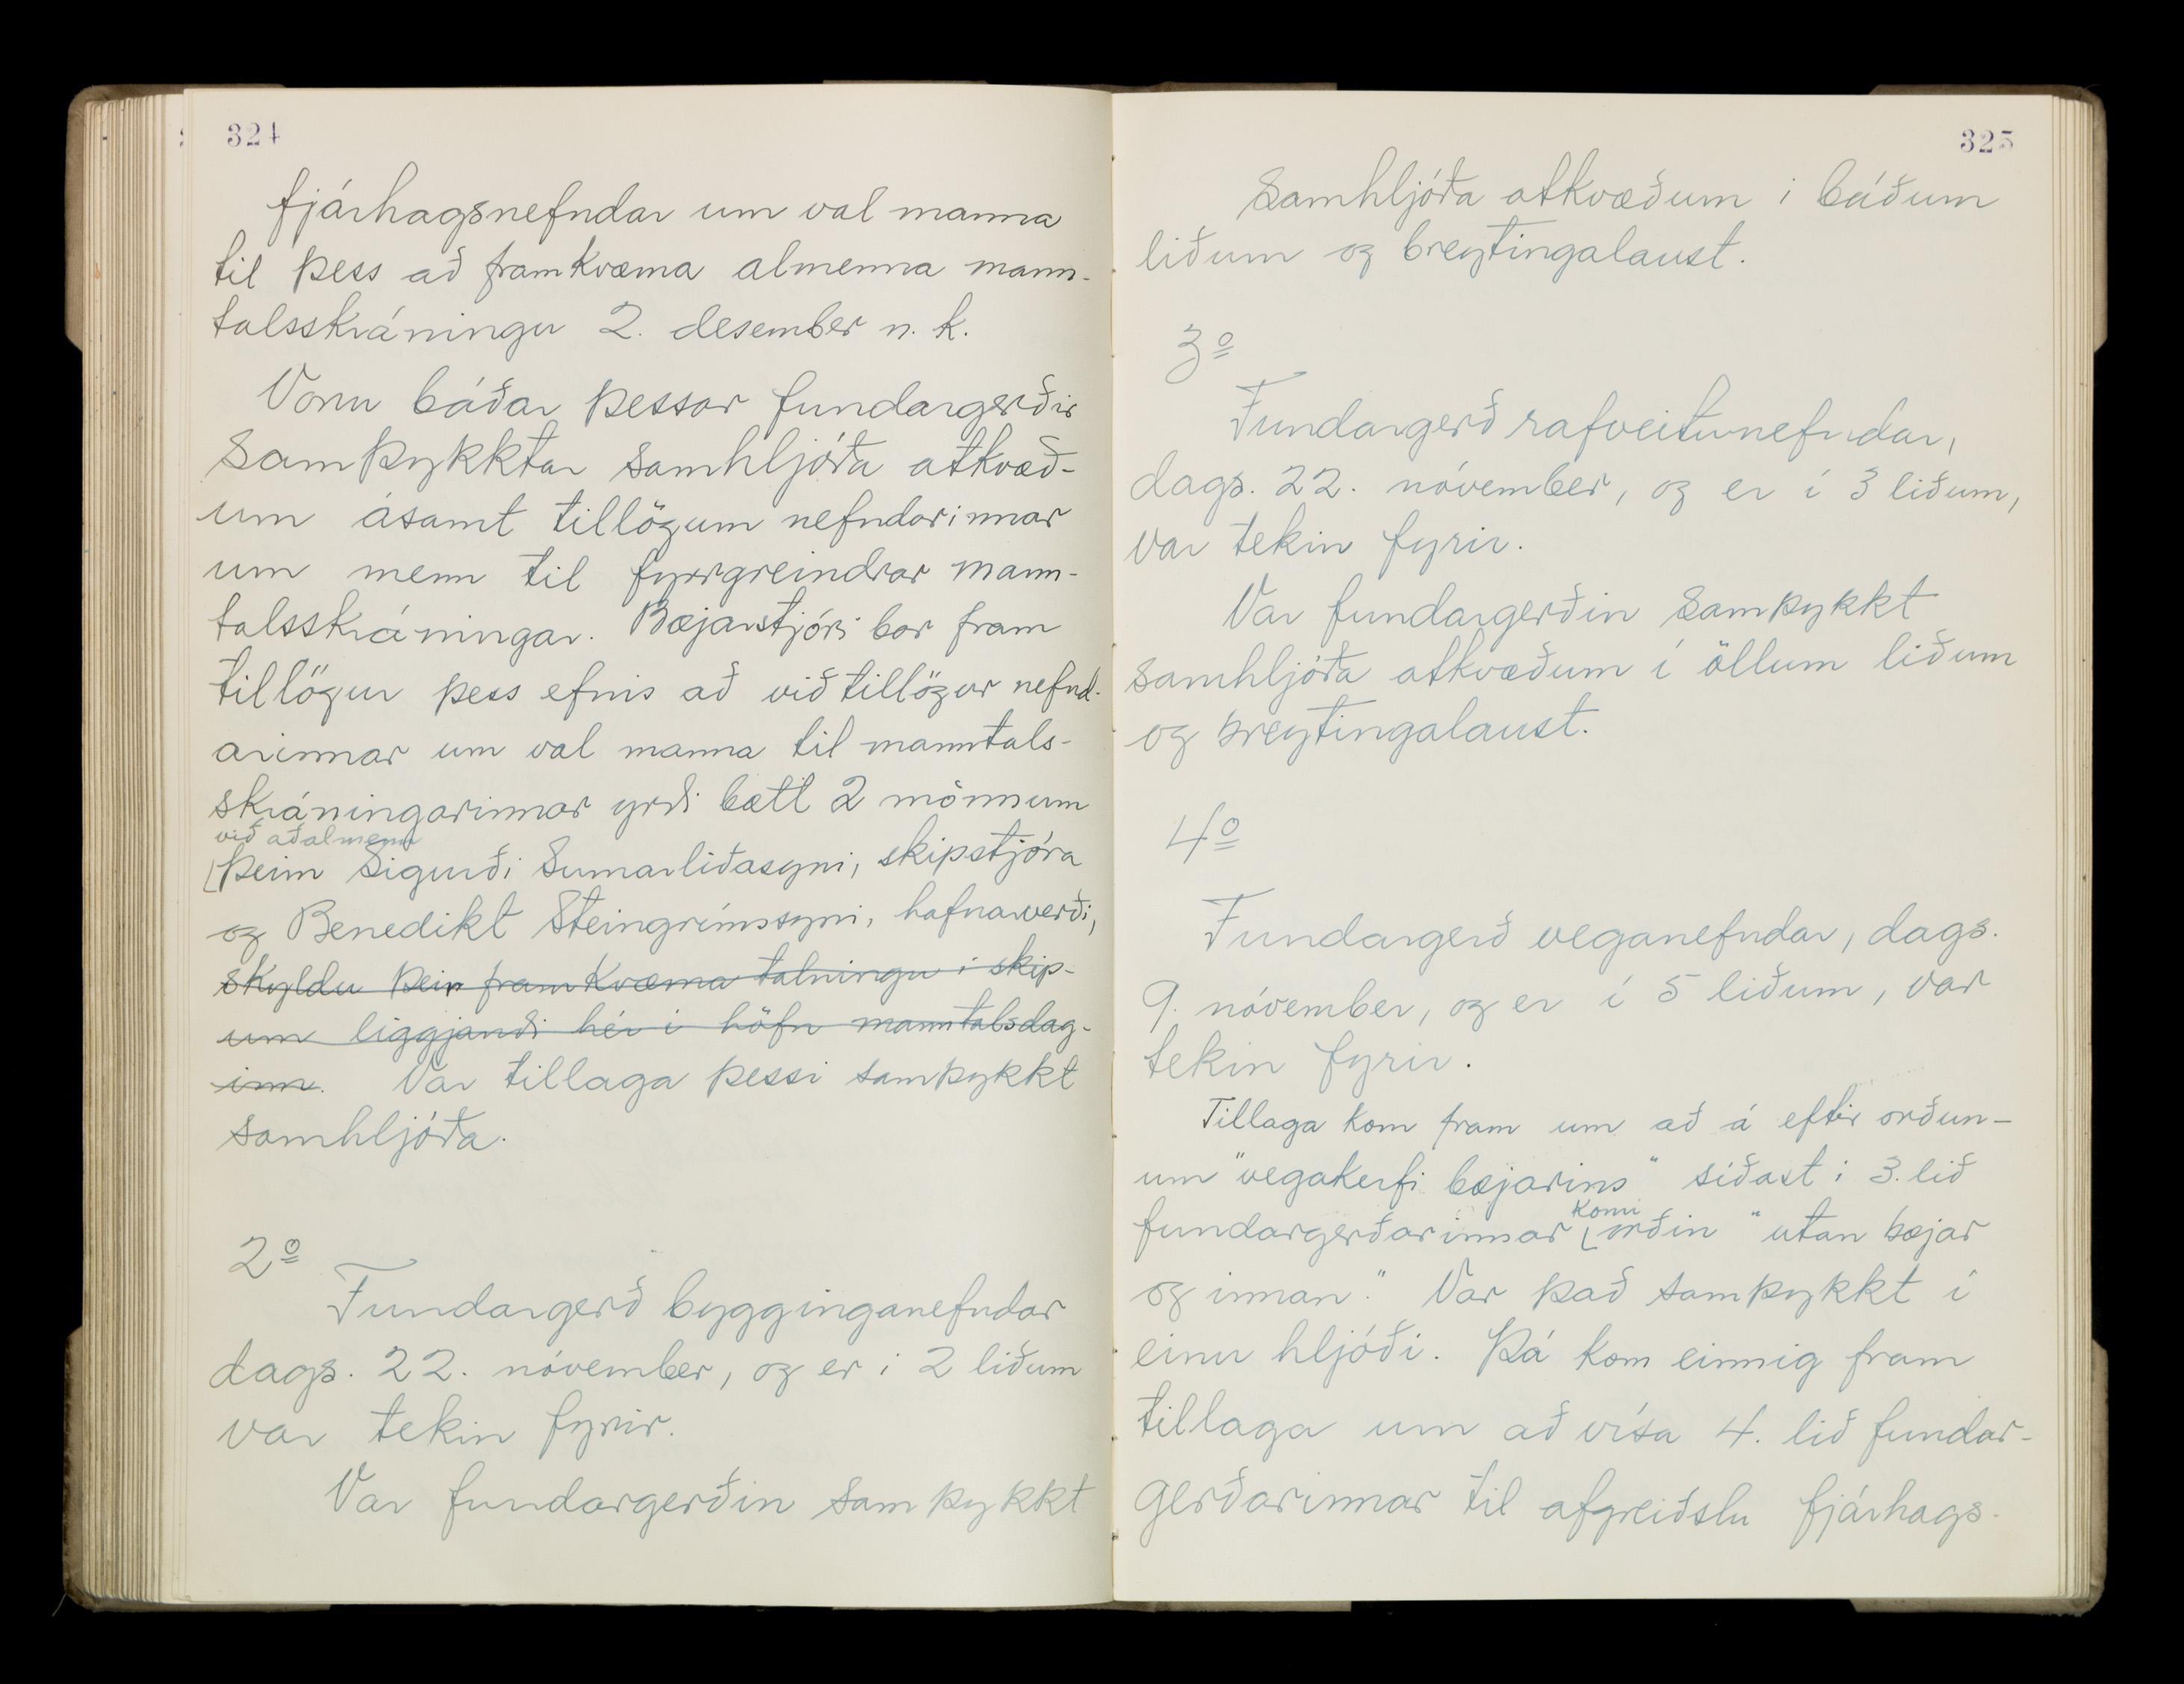 324
fjárhagsnefndar um val manna
til þess að framkvæma almenna mann-
talsskráningu 2. desember n.k.
Voru báðar þessar fundargerðir
samþykktar samhljóða atkvæð-
um ásamt tillögum nefndarinnar
um menn til fyrrgreindrar mann-
talsskráningar. Bæjarstjóri bar fram
tillögur þess efnis að við tillögur nefnd-
arinnar um val manna til manntals-
skráningarinnar yrði bætt 2 mönnum
við aðalmenn
þeim Sigurði Sumarliðasyni, skipstjóra
og Benedikt Steingrímssyni, hafnarverði,
skyldu þeir framkvæma talningu í skip-
um liggjandi hér í höfn manntalsdag-
inn. Var tillaga þessi samþykkt
samhljóða.
2º
Fundargerð bygginganefndar
dags. 22. nóvember, og er í 2 liðum
var tekin fyrir.
Var fundargerðin samþykkt
325
samhljóða atkvæðum í báðum
liðum og breytingalaust.
3º
Fundargerð rafveitunefndar,
dags. 22. nóvember, og er í 3 liðum,
var tekin fyrir.
Var fundargerðin samþykkt
samhljóða atkvæðum í öllum liðum
og breytingalaust.
4º
Fundargerð veganefndar, dags.
9. nóvember, og er í 5 liðum, var
tekin fyrir.
Tillaga kom fram um að á eftir orðun-
um "vegakerfi bæjarins" síðast í 3. lið
komi
fundargerðarinnar orðin "utan bæjar
og innan." Var það samþykkt í
einu hljóði. Þá kom einnig fram
tillaga um að vísa 4. lið fundar-
gerðarinnar til afgreiðslu fjárhags-